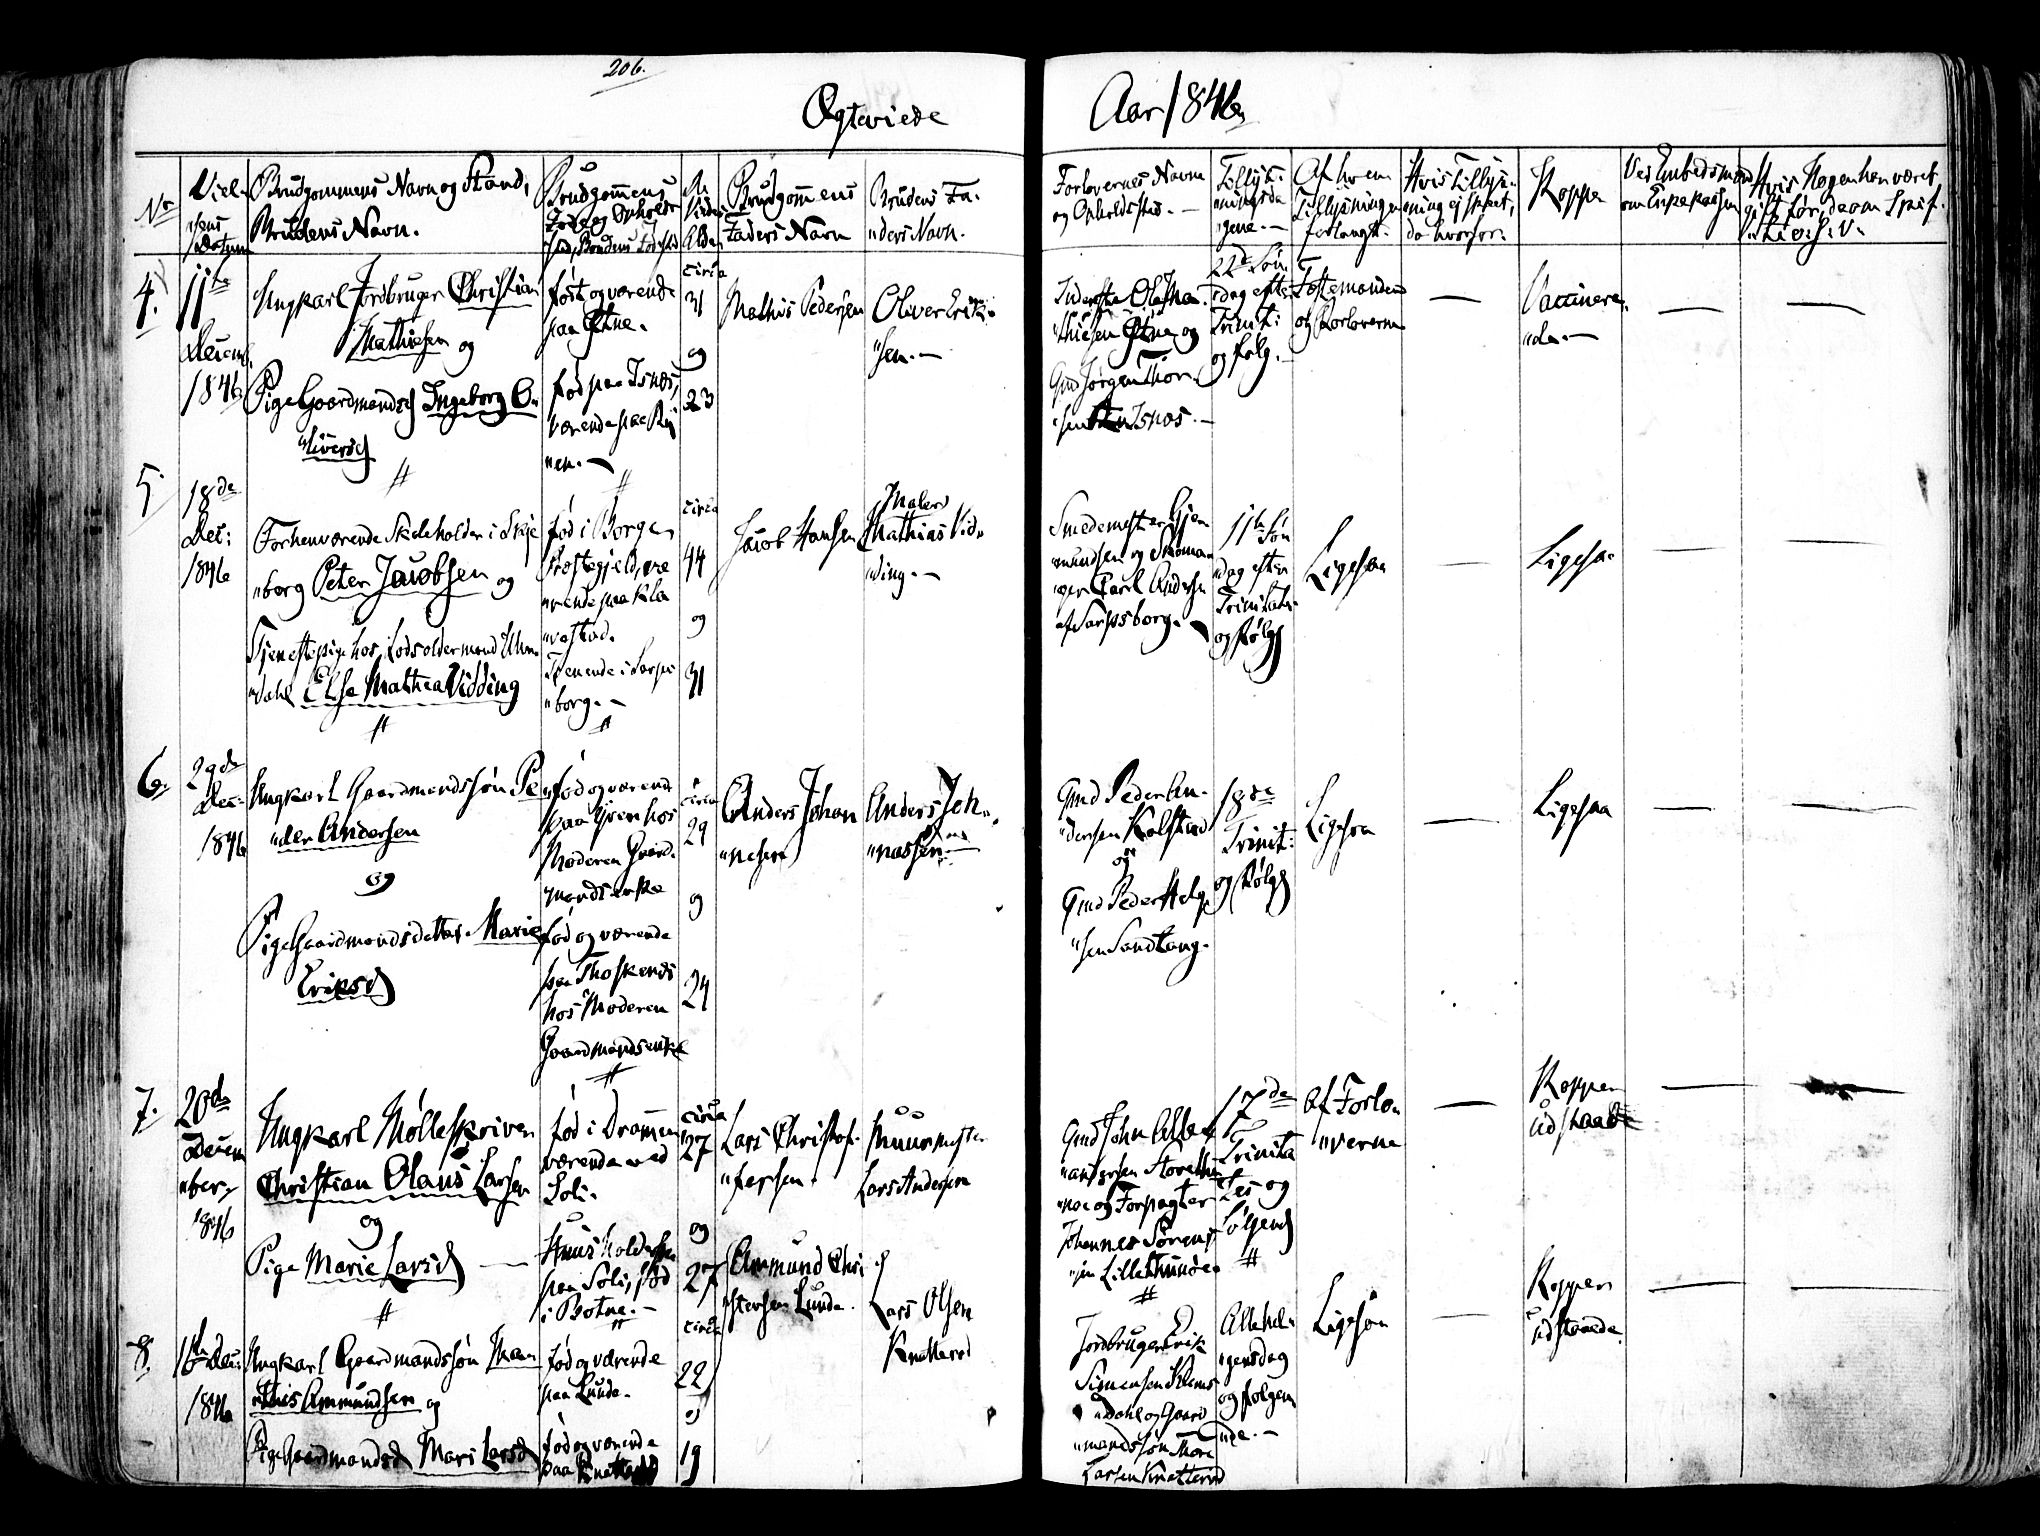 206.
Ægteviede
Aar 1846
No
Viel-
"sens
Datum
Brudgommens Navn og Stand,
Brudens Navn.
Brudgommens
Føde og Opholds
sted, Brudens Fødested
Brudgommens
Faders Navn
Brudens Fa-
"ders Navn.
Forlovernes Navne
og Opholdssted. —
Tillys-
"ningsda
"gene. —
Af hvem
Tillysningen
forlangt.
Hvis Tillys-
"ning ej skeet,
da hvorfor.
Kopper
Ved Embedsmænd
om Enkekassen
Hvis Nogen har været
gift før, da om Skif-
4.
11te
Decemb.
1846
Ungkarl Jordbruger Christian
Mathisen og
Pige Gaardmandsd Ingeborg O-
"liversd
født og værende
paa Østne.
fød paa Isnæs,
værende paa Ry
"en. —
circa
31
og
23
Mathis Pedersen
Oliver Erik-
"sen. —
Inderste Ole Ma-
"thiesen Østne og
Gmd Jørgen Thor-
"sen Isnæs. —
22de Søn-
"dag efter
Trinit:
og følg. —
Festemanden
og Forloverne
—
Vaccinere-
"de. —
—
—
5.
18de
Dec:
1846
Forhenværende Skoleholder i Skje
"berg Peter Jacobsen og
Tjenestepige hos Lodsoldermand Un-
"dahl Else Mathea Vidding
fød i Borge
Præstegjeld, væ
"rende paa Kla
"vestad.
Tjenende i Sarps
"borg. —
circa
44
og
31
Jacob Hansen
Maler
Mathias Vid-
"ding. —
Smedemester Gjer
"mundsen og Skoma-
"ger Carl Andersen
af Sarpsborg.
11te Søn
"dag efter
Trinitatis
og følg
Ligesaa
—
Ligesaa
—
—
6.
29de
Dec:
1846
Ungkarl Gaardmandssøn Pe-
"der Andersen
og
Pige Gaardmandsdatter Marie
Eriksd
fød og værende
paa Green hos
Moderen Gaard-
mandsenke
fød og værende
paa Thoskends
hos Moderen
Gaardmandsenke
circa
29
og
24
Anders Johan
"nesen
Anders Joh-
"nassen
Gmd Peder An-
"dersen Kolstad
og
Gmd Peder Helg
"sen Sandtang.
18de
Trinit:
og følg
Ligesaa
—
Ligesaa
—
—
7.
20de
Decem
"ber
1846
Ungkarl Mølleskriver
Christian Olaus Larsen
og
Pige Marie Larsd —
fød i Drammen
værende ved
Soli.
Huusholderske
paa Soli, fød
i Botne. —
circa
27
og
27
Lars Christof-
"fersen
Muurmester
Lars Andersen
Gmd John Alex
"andersen Storethu
"ne og Forpagter
Johannes Sørens
"sen Lillethune
17de
Trinita
Tes og
følgend
Af Forlo-
"verne
—
Kopper
udstaaet
—
—
8.
16de Dec:
1846
Ungkarl Gaardmandssøn Ma
"this Ammundsen og
Pige Gaardmandsd Mari Larsd
fød og værende
paa Lunde.
fød og værende
paa Knatterød
circa
22
og
19
Ammund Chri
"stensen Lunde.
Lars Olsen
Knatterød
Jordbruger Erik
Simensen Klems
"dahl og Gaard
"mandssøn Thore
Larsen Knatterød
Allehel-
"gensdag
og følgen
"de. —
Ligesaa
—
Kopper
udstaaede
—
—